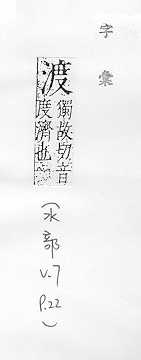 字彙
渡
獨故切音
度濟也
(水部
V.7
P.22)